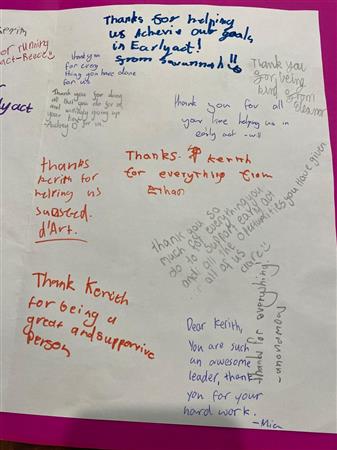 Thanks for helping
us Achevie our goals
in Earlyact!
from savannah!!
for running
act-Reece
thankyou
for every
thing you have done
for us
Thank you
for being
kind from
eleanor
Thank you for doing
all that you do for us
and
your time for us
Audrey
thank you for all
your time helping us in
early act -will
thanks
Kerith for
helping us
sucseed.
d'Art.
Thanks Kerith
for everything from
Ethan
thank you so
much for everything you
do to support early act
and all the oportunities you have given
all of us
Clare
Thank Kerith
for being a
great and supporvive
person
thanks for everything.
Dear Kerith,
You are such
an awesome
leader, thank
you for your
hard work.
-Mia